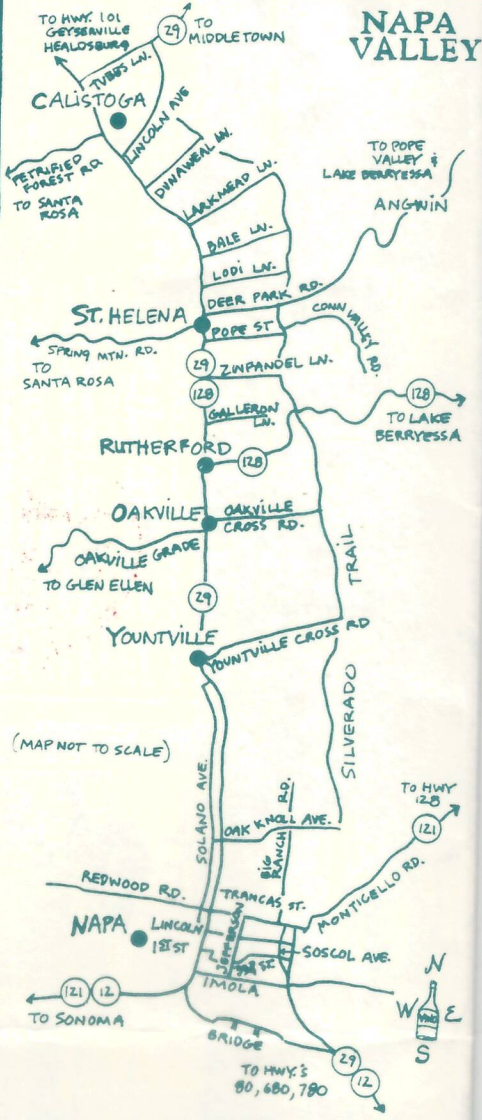 NAPA
VALLEY
TO HWY. 101
GEYSERVILLE
HEALDSBURG
29
TO
MIDDLETOWN
TUBBS LN.
CALISTOGA
LINCOLN AVE
DUNAWEAL LN.
LARKMEAD LN.
PETRIFIED
FOREST RD
TO SANTA
ROSA
TO POPE
VALLEY &
LAKE BERRYESSA
ANGWIN
BALE LN.
LODI LN.
DEER PARK RD.
ST. HELENA
POPE ST
CONN VALLEY
RD.
SPRING MTN. RD.
TO
SANTA ROSA
29
ZINFANDEL LN.
128
GALLERON
LN.
128
TO LAKE
BERRYESSA
RUTHERFORD
128
OAKVILLE
OAKVILLE
CROSS RD.
OAKVILLE GRADE
TO GLEN ELLEN
29
SILVERADO TRAIL
YOUNTVILLE
YOUNTVILLE CROSS RD
(MAP NOT TO SCALE)
SOLANO AVE.
OAK KNOLL AVE.
BIG
RANCH RD.
TO HWY
128
121
MONTICELLO RD.
REDWOOD RD.
TRANCAS ST.
NAPA
LINCOLN
1ST ST
JEFFERSON
3RD ST
SOSCOL AVE.
IMOLA
121 12
TO SONOMA
BRIDGE
TO HWY.'S
80, 680, 780
29
12
N
W E
S